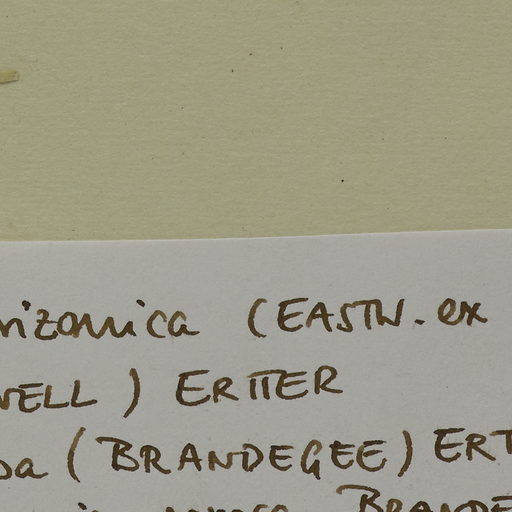 rizonica (EASTW. ex
WELL) ERTTER
pa (BRANDEGEE) ERT
BRANDE